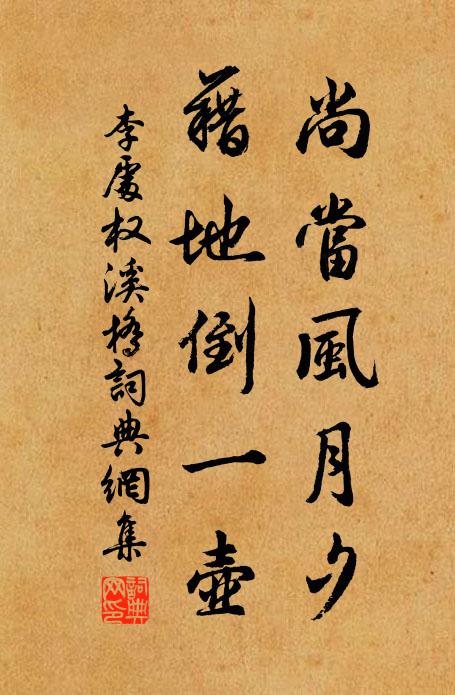 尚當風月夕
藉地倒一壺
李處权溪橋詞典網集
詞典网印